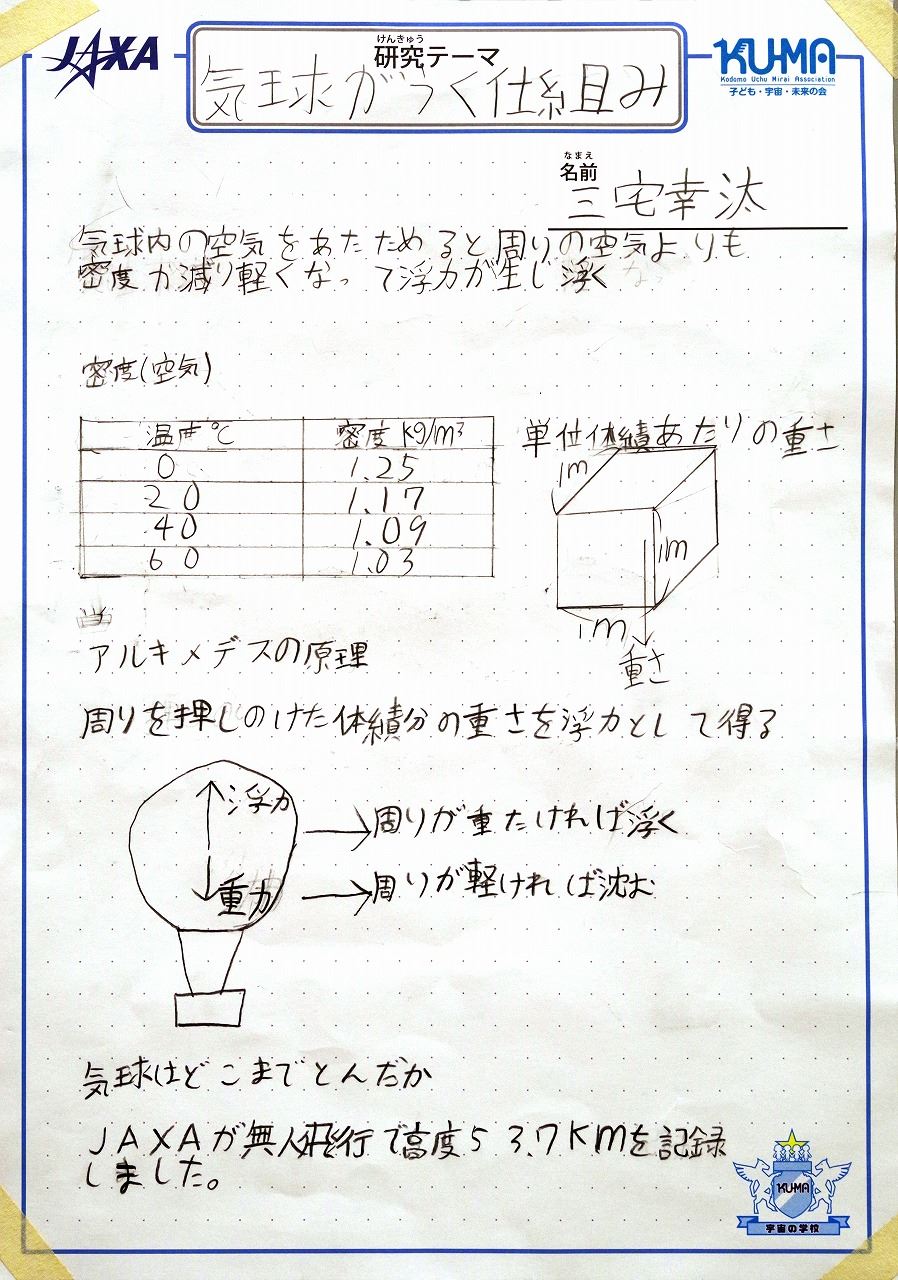 JAXA
けんきゅう
研究テーマ
KU-MA
Kodomo Uchu Mirai Association
子ども・宇宙・未来の会
気球がうく仕組み
なまえ
名前
三宅幸汰
気球内の空気をあたためると周りの空気よりも
密度が減り軽くなって浮力が生じ浮く
密度(空気)
温度℃ 密度kg/m³
0 1.25
20 1.17
40 1.09
60 1.03
単位体積あたりの重さ
1m
1m
1m
重さ
アルキメデスの原理
周りを押しのけた体積分の重さを浮力として得る
浮力
周りが重たければ浮く
重力
周りが軽ければ沈む
気球はどこまでとんだか
JAXAが無人飛行で高度53.7Kmを記録
しました。
KU-MA
宇宙の学校